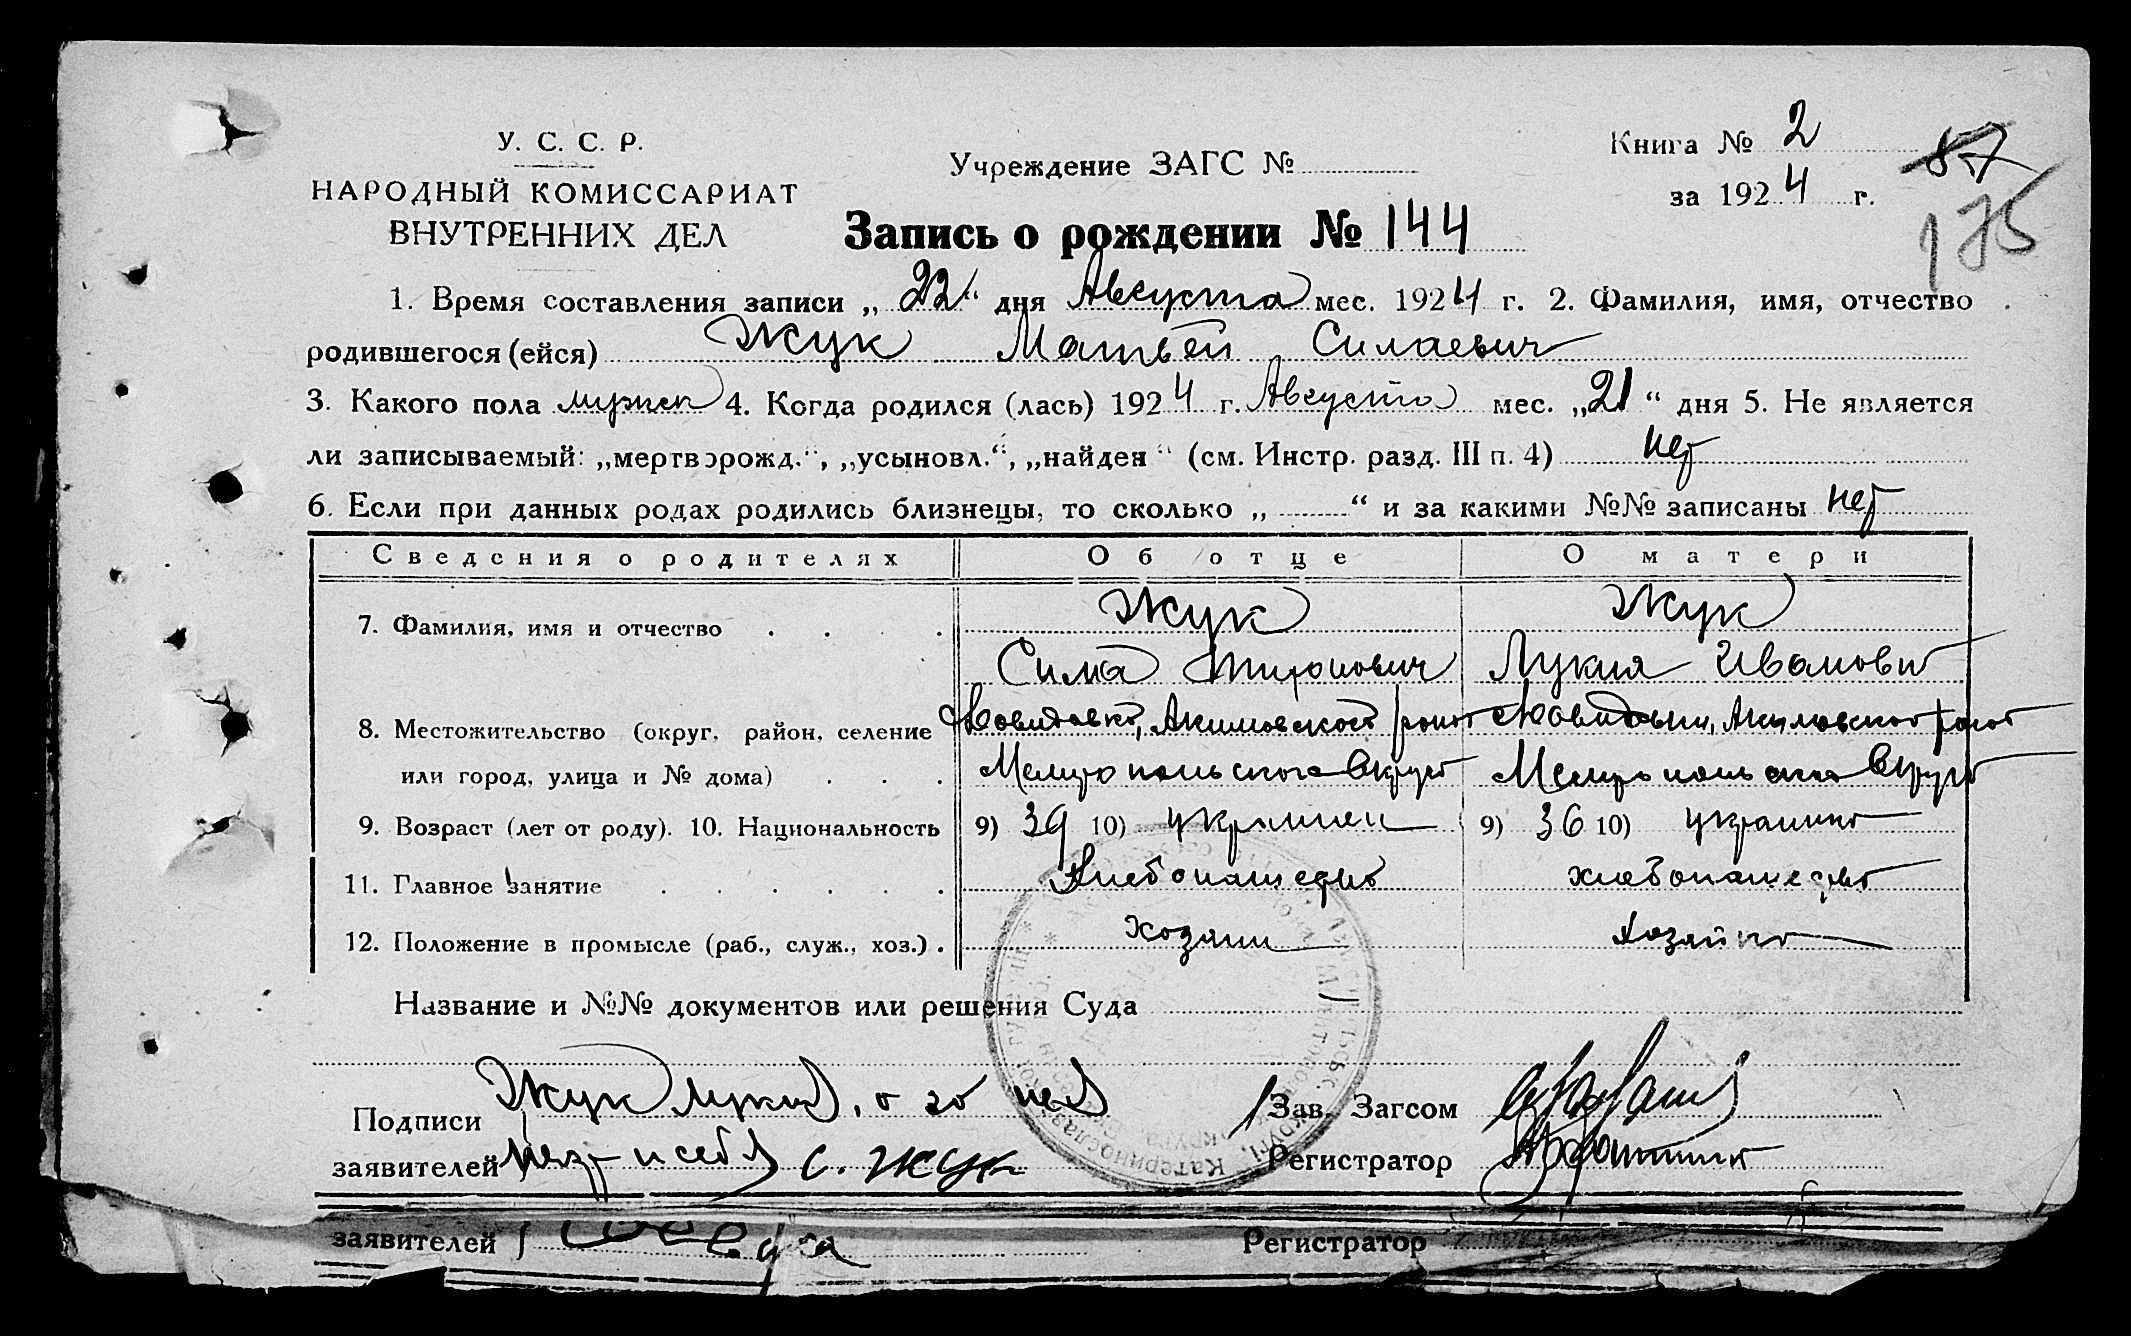 У. С. С. Р.
НАРОДНЫЙ КОМИССАРИАТ
ВНУТРЕННИХ ДЕЛ
Учреждение ЗАГС №
Книга № 2
за 1924 г.
87
175
Запись о рождении № 144
1. Время составления записи „22“ дня Августа мес. 1924 г. 2. Фамилия, имя, отчество
родившегося (ейся) Жук Матвей Силаевич
3. Какого пола мужск 4. Когда родился (лась) 1924 г. Августа мес. „21“ дня 5. Не является
ли записываемый: „мертворожд.“, „усыновл.“, „найден“ (см. Инстр. разд. III п. 4) нет
6. Если при данных родах родились близнецы, то сколько „ “ и за какими №№ записаны нет
Сведения о родителях Об отце О матери
7. Фамилия, имя и отчество Жук Жук
Сила Лукия Иванови
8. Местожительство (округ, район, селение Акимовского Акимовского
или город, улица и № дома) Мелитопольского Округа Мелитопольского Округа
9. Возраст (лет от роду). 10. Национальность 9) 39 10) украинец 9) 36 10) украинка
11. Главное занятие Хлебопашество хлебопашество
12. Положение в промысле (раб., служ., хоз.) хозяин хозяйка
Название и №№ документов или решения Суда
Подписи Жук Лукия, а за нея Зав. Загсом
заявителей и себя С. Жук Регистратор
заявителей Регистратор